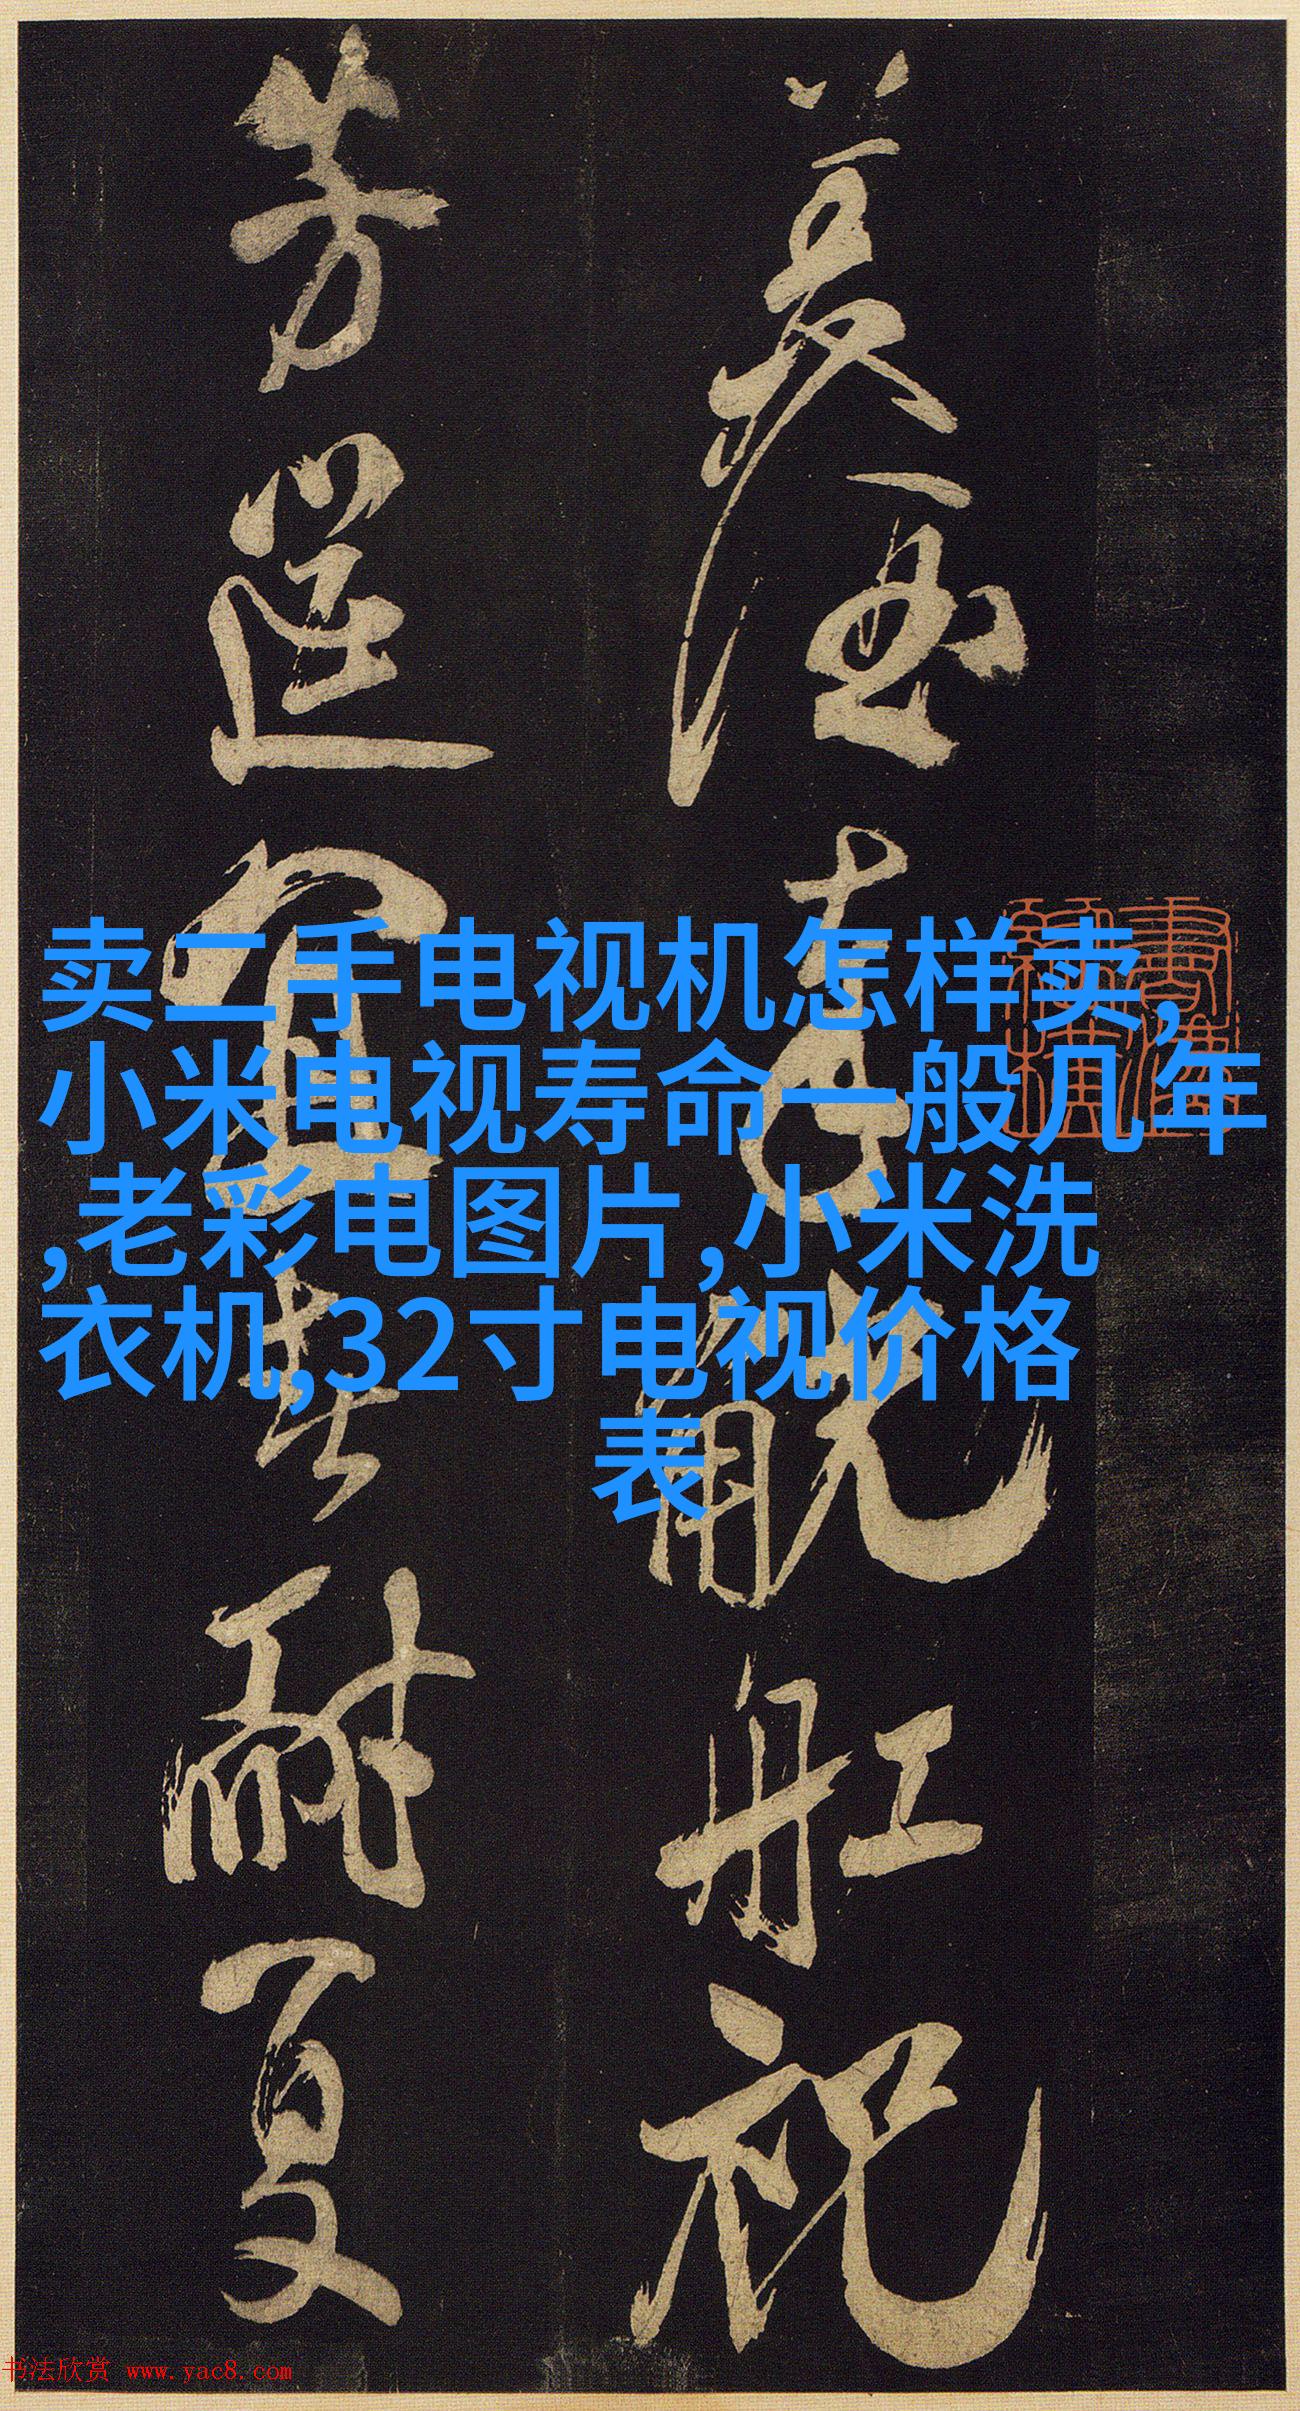 美酒喜觥船祝
芳筵宜
耐夏
卖二手电视机怎样卖,
小米电视寿命一般几年
,老彩电图片,小米洗
衣机,32寸电视价格
表
书法欣赏 www.yac8.com